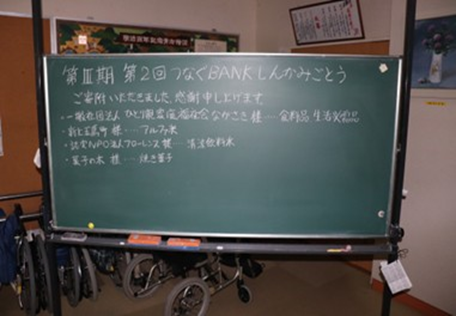 第Ⅲ期 第2回つなぐBANKしんかみごとう
ご寄附いただきました.感謝申し上げます.
・一般社団法人 ひとり親家庭福祉会ながさき 様…食料品 生活災用品
・新上五島町 様‥‥アルファ米
・認定NPO法人フローレンス 様…清涼飲料水
・菓子の木 様‥‥焼き菓子